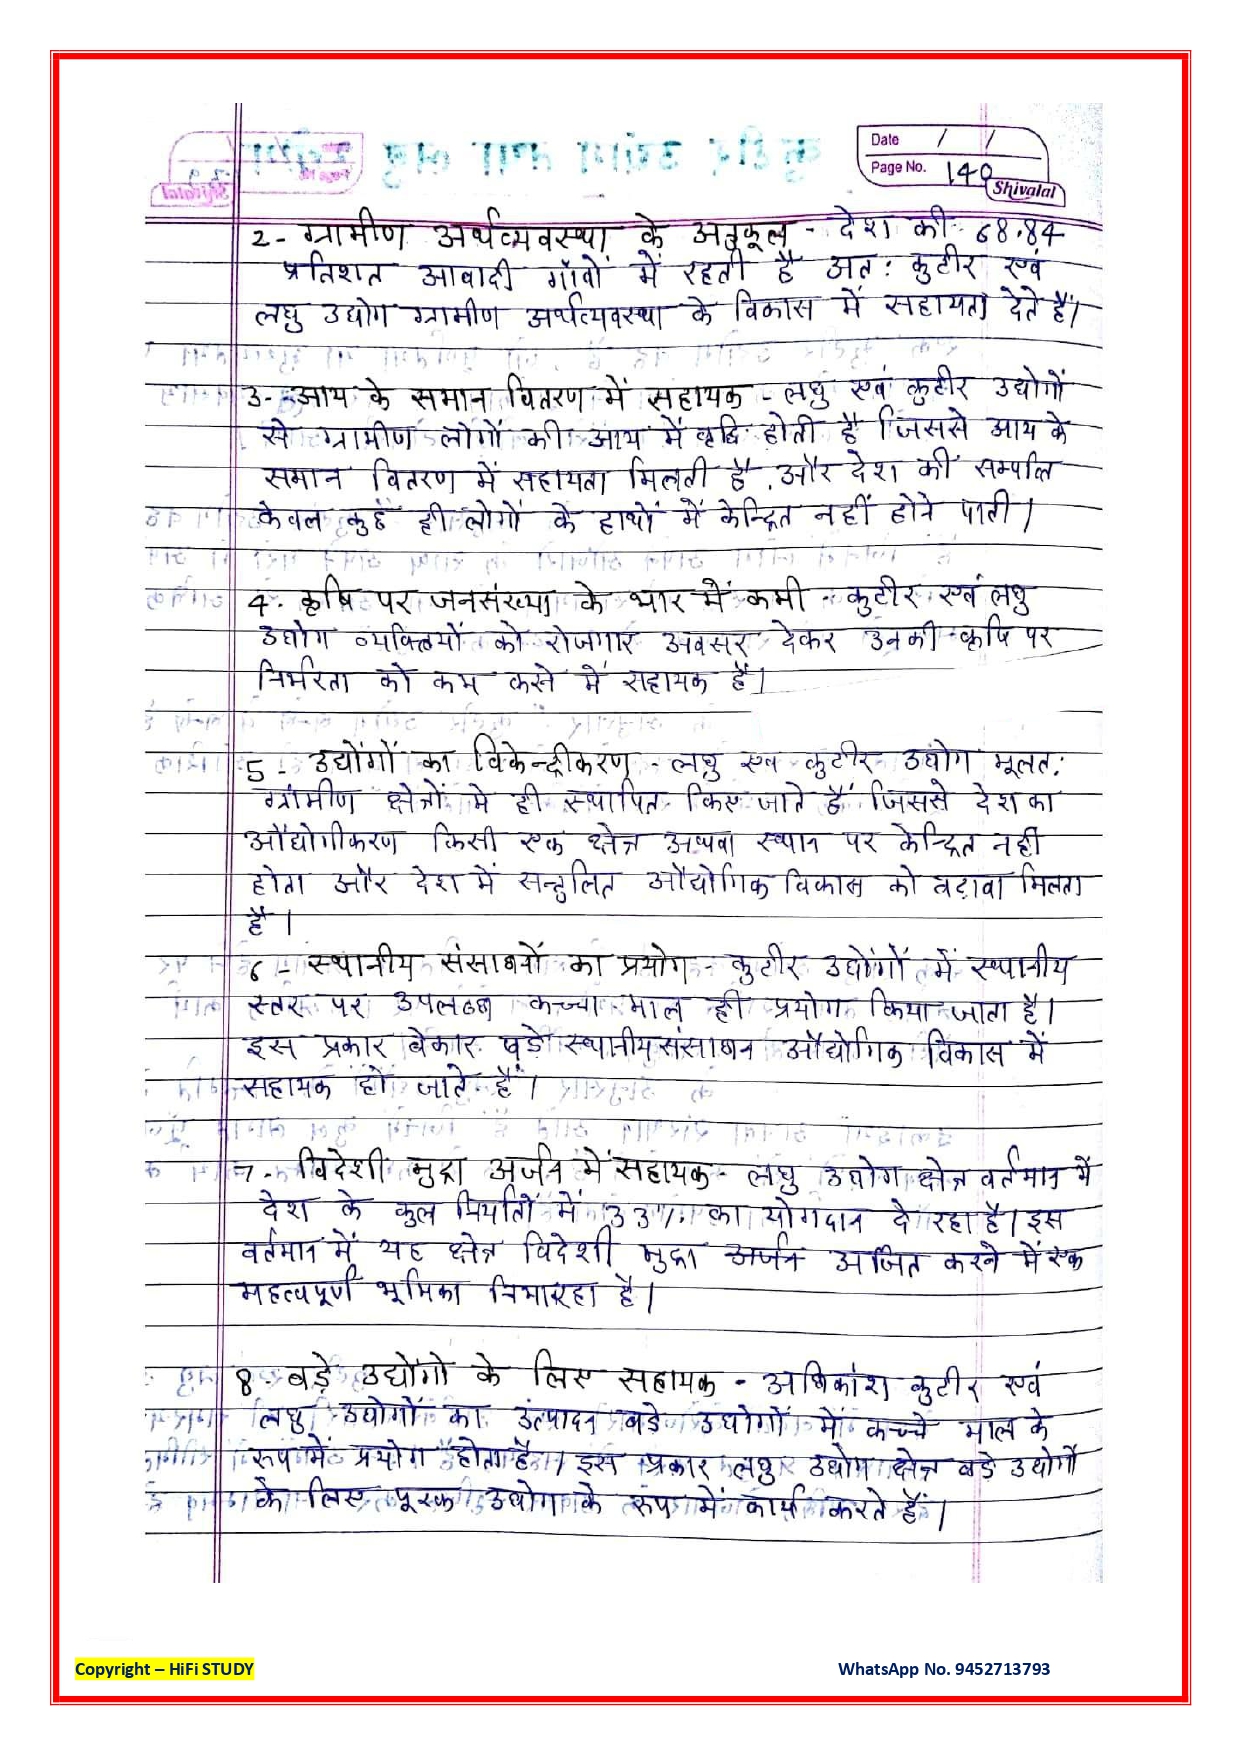 Date / /
Page No. 140
Shivalal
2- ग्रामीण अर्थव्यवस्था के अनुकूल - देश की 68.84
प्रतिशत आबादी गाँवों में रहती है अत: कुटीर एवं
लघु उद्योग ग्रामीण अर्थव्यवस्था के विकास में सहायता देते हैं।
3- आय के समान वितरण में सहायक - लघु एवं कुटीर उद्योगों
से ग्रामीण लोगों की आय में वृद्धि होती है जिससे आय के
समान वितरण में सहायता मिलती है और देश की सम्पत्ति
केवल कुछ ही लोगों के हाथों में केन्द्रित नहीं होने पाती।
4- कृषि पर जनसंख्या के भार में कमी - कुटीर एवं लघु
उद्योग व्यक्तियों को रोजगार अवसर देकर उनकी कृषि पर
निर्भरता को कम करने में सहायक हैं।
5- उद्योंगों का विकेन्द्रीकरण - लघु एवं कुटीर उद्योग मूलत:
ग्रामीण क्षेत्रों मे ही स्थापित किए जाते हैं जिससे देश का
औद्योगीकरण किसी एक क्षेत्र अथवा स्थान पर केन्द्रित नहीं
होता और देश में सन्तुलित औद्योगिक विकास को बढ़ावा मिलता
है।
6- स्थानीय संसाधनों का प्रयोग - कुटीर उद्योंगों में स्थानीय
स्तर पर उपलब्ध कच्चा माल ही प्रयोग किया जाता है।
इस प्रकार बेकार पड़े स्थानीय संसाधन औद्योगिक विकास में
सहायक हो जाते हैं।
7- विदेशी मुद्रा अर्जन में सहायक - लघु उद्योग क्षेत्र वर्तमान में
देश के कुल निर्यातों में 33% का योगदान दे रहा है। इस
वर्तमान में यह क्षेत्र विदेशी मुद्रा अर्जन अर्जित करने में एक
महत्वपूर्ण भूमिका निभा रहा है।
8- बड़े उद्योगो के लिए सहायक - अधिकांश कुटीर एवं
लघु उद्योगों का उत्पादन बड़े उद्योगों में कच्चे माल के
रूप में प्रयोग होता है। इस प्रकार लघु उद्योग क्षेत्र बड़े उद्योगों
के लिए पूरक उद्योग के रूप में कार्य करते हैं।
Copyright – HiFi STUDY
WhatsApp No. 9452713793